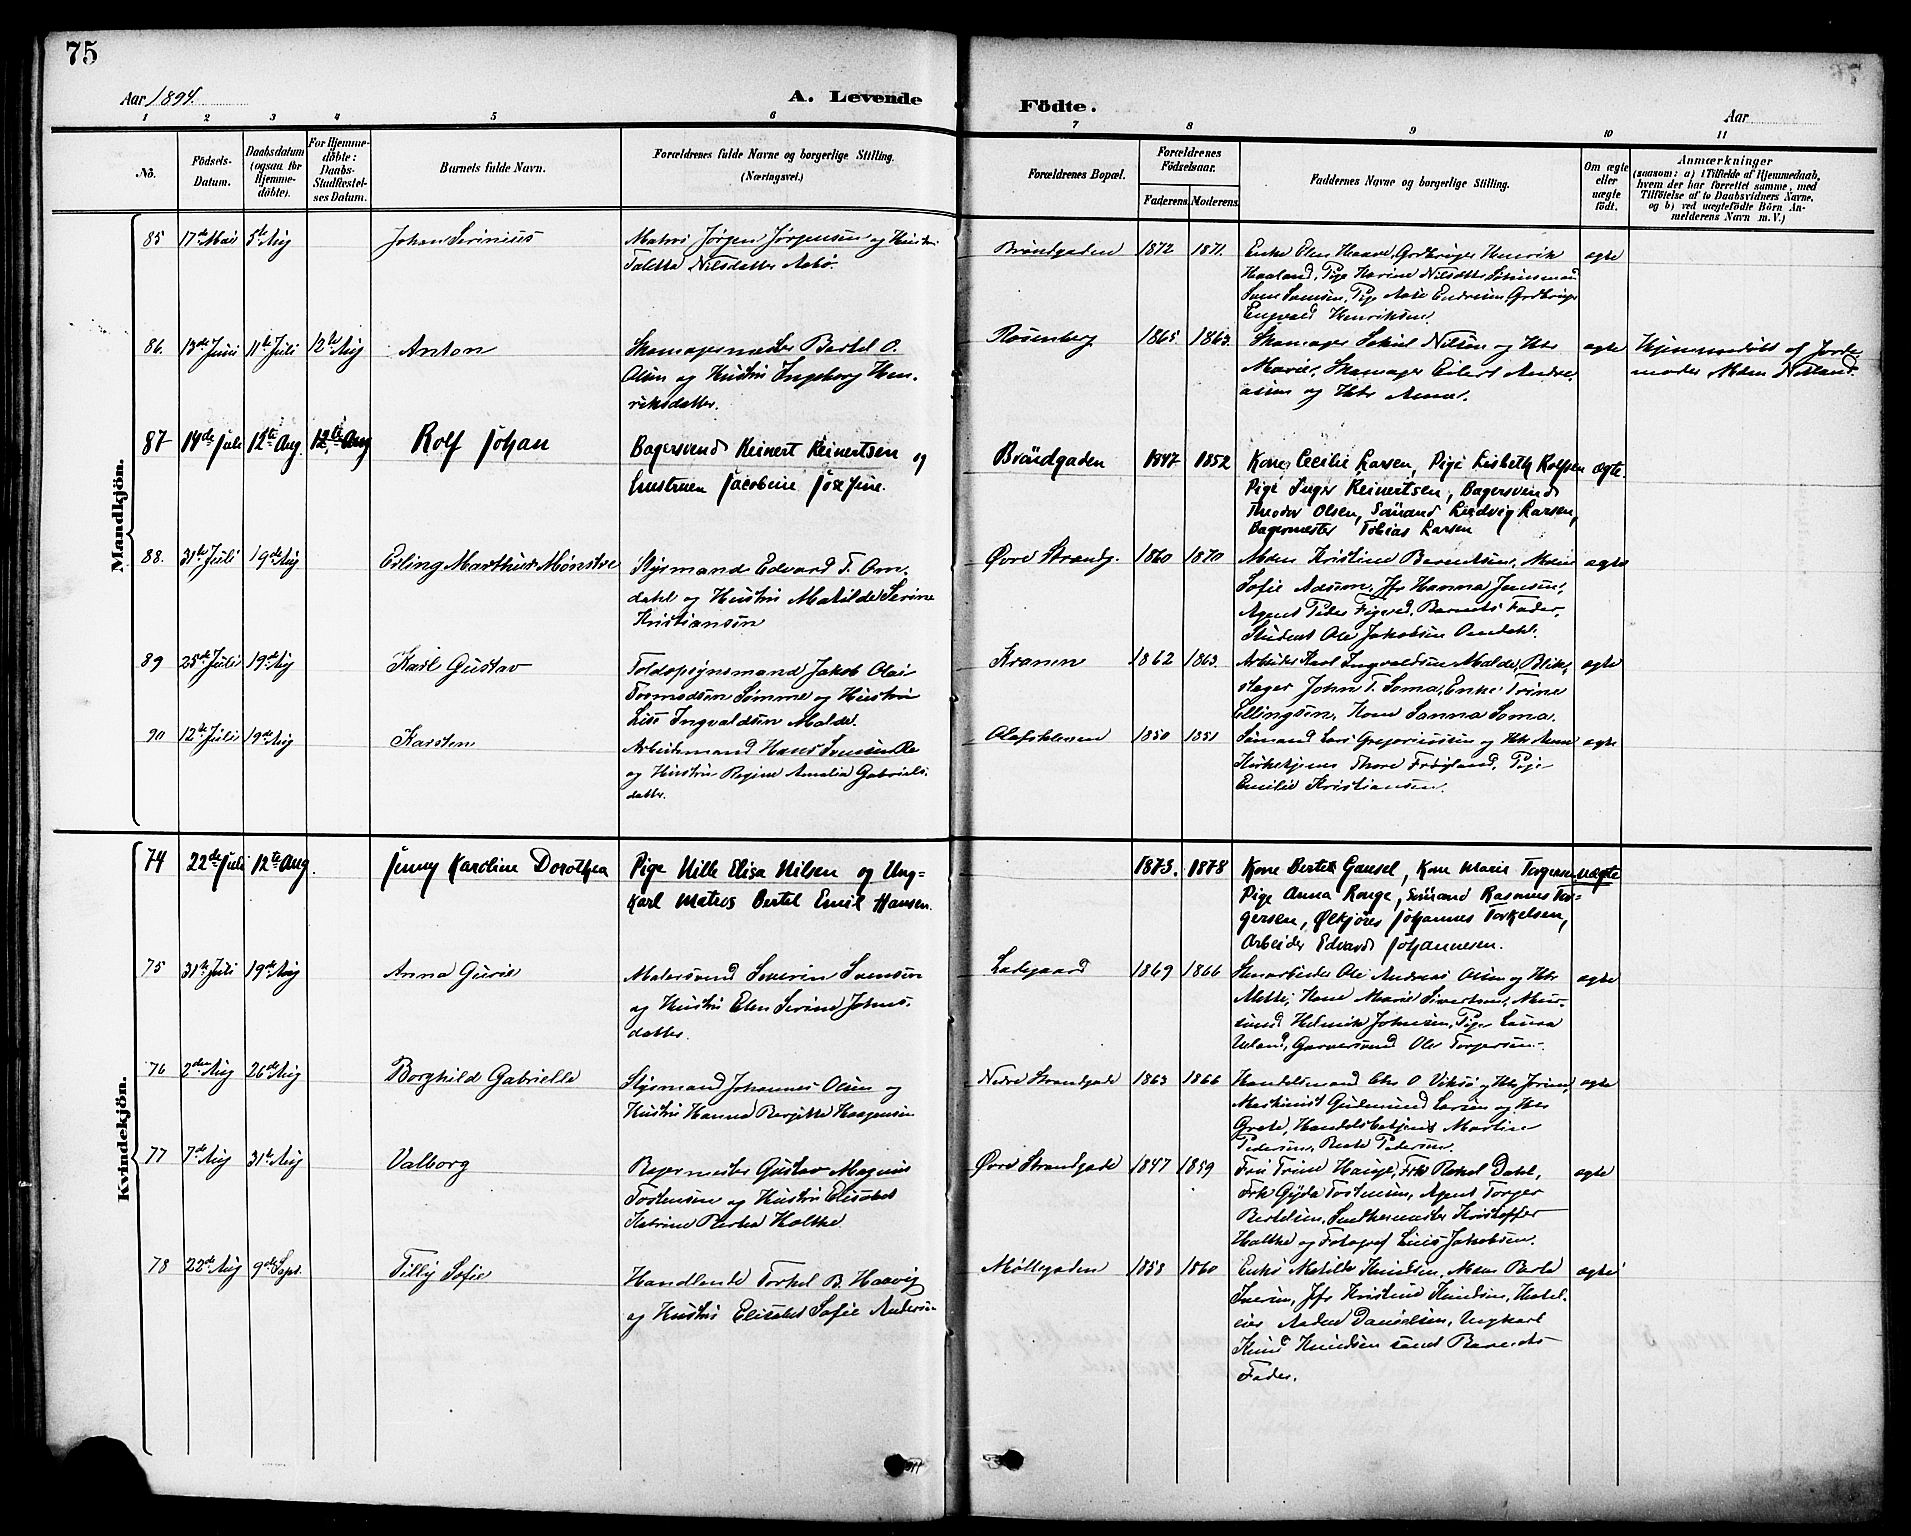 75
Aar 1894.
A. Levende
Födte.
Aar
1 2 3 4 5 6 7 8 9 10 11
No.
Födsels-Datum.
Daabsdatum (ogsaa for Hjemme-döbte).
For Hjemme-döbte: Daabs-Stadfæstel-ses Datum.
Barnets fulde Navn.
Forældrenes fulde Navne og borgerlige Stilling.
(Næringsvei.)
Forældrenes Bopæl.
Forældrenes Födselsaar.
Faderens. Moderens.
Faddernes Navne og borgerlige Stilling.
Om ægte eller uægte født.
Anmærkninger
(saasom: a) i Tilfælde af Hjemmedaab,
hvem der har forrettet samme, med
Tilföielse af to Daabsvidners Navne.
og b) ved uægtefödte Börn An-
melderens Navn m. V.)
Mandkjön.
85 17de Mai 5te Aug Johan Serinius Matros Jørgen Jørgensen og Hustru
Taletta Nilsdatter Aabø.
Brøndgaden 1872 1871. Enke Elen Haave, Gardbruger Henrik ægte
Haaland, Pige Karine Nilsdatter, Sømand
Svend Svensen, Pige Aase Endresen, Grdbruger
Engvald Henriksen.
86. 13de Juni 11te Juli 12te Aug Anton Skomagermester Bertel O.
Olsen og Hustru Ingeborg Hen-
riksdatter.
Rosenberg 1865. 1863. Skomager Sakiel Nilsen og Htr ægte
Marie, Skomager Eilert Andre-
asen og Htr Anna.
Hjemmedøbt af Jorde-
moder Mdm Netland.
87 14de Juli 12te Aug. 12te Aug Rolf Johan Bagersvend Reinert Reinertsen og
Hustruen Jacobine Josefine.
Brøndgaden 1847 1852 Kone Cecilie Larsen, Pige Lisbeth Rolfsen ægte.
Pige Inger Reinertsen, Bagersvend
Theodor Olsen, Sømand Ludvig Larsen,
Bagermester Tobias Larsen
88. 31te Juli 19de Aug Erling Marthur Mønstre Styrmand Edvard T. Om-
dahl og Hustru Matilde Serine
Kristiansen
Øvre Strandg. 1860 1870 Mdm Kristine Berentsen, Mdm ægte
Sofie Adsen, Jfr Hanna Jensen,
Agent Peder Figved, Barnets Fader,
Student Ole Jakobsen Omdahl.
89 25de Juli 19de Aug Karl Gustav Toldopsynsmand Jakob Olai
Tormodsen Sømme og Hustru
Liss Ingvaldsen Malde.
Kranen 1862 1863. Arbeider Karl Ingvaldsen Malde, Blik- ægte
slager John T. Soma, Enke Trine
Ellingsen, Kone Sanna Soma.
90 12te Juli 19de Aug Karsten Arbeidsmand Hans Svensen Re
og Hustru Regine Amalia Gabriels-
datter.
Olafskleven 1850 1851 Sømand Lars Gregoriussen og Htr Anne ægte
Kirketjener Thore Frøiland, Pige
Emilie Kristiansen.
Kvindekjön.
74 22de Juli 12te Aug. Jenny Karoline Dorothea Pige Nille Elisa Nilsen og Ung-
karl Matros Bertel Emil Hansen.
1873. 1878 Kone Berte Gausel, Kone Marie Torgersen uægte
Pige Anna Ronge, Sømand Rasmus Tor-
gersen, Ølkjører Johannes Torkelsen,
Arbeider Edvard Johannesen.
75 31te Juli 19de Aug Anna Gurie Malersvend Severin Svensen
og Hustru Elen Serine Johns-
datter.
Ladegaard 1869 1866 Stenarbeider Ole Andreas Olsen og Htr ægte
Mette, Kone Marie Sivertsen, Mur-
svend Helmik Johnsen, Pige Laura
Ueland, Garversvend Ole Torgersen.
76 2den Aug 26de Aug Borghild Gabrielle Styrmand Johannes Olsen og
Hustru Hanna Bergitte Haagensen
Nedre Strandgade 1863 1866 Handelsmand Chr O Viksø og Htr Jorine, ægte
Maskinist Gudmund Larsen og Htr
Grete, Handelsbetjent Martin
Pedersen, Beate Pedersen.
77 7de Aug 31te Aug Valborg Bagermester Gustav Magnus
Tostensen og Hustru Elisabet
Katrine Bertea Holtke.
Øvre Strandgade 1847 1859 Fru Trine Hauge, Frk Rakel Dahl, ægte
Frk Gyda Tostensen, Agent Torger
Bertelsen, Snedkermester Kristoffer
Holtke og Fotograf Luis Jakobsen.
78 22de Aug 9de Sept. Tilly Sofie Handlende Torkel B. Haavig
og Hustru Elisabet Sofie Andersen
Møllegaden 1858 1860 Enke Matilde Knudsen, Mdm Berte ægte
Iversen, Jfr Kristine Knudsen, Hotel-
eier Anders Danielsen, Ungkarl
Knud Knudsen samt Barnets
Fader.